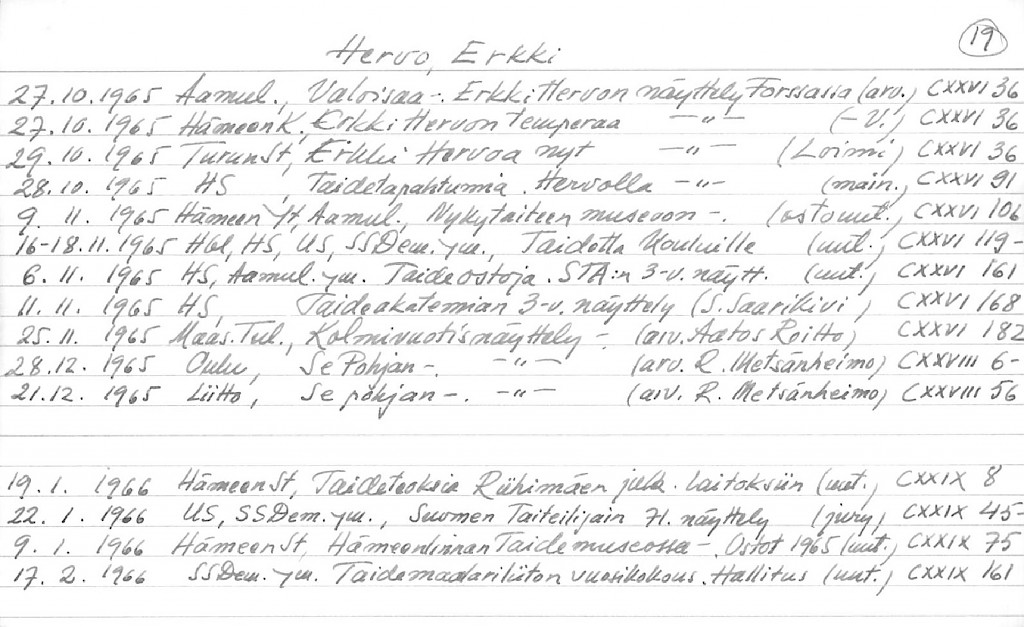 19
Hervo, Erkki
27.10.1965 Aamul., Valoisaa -. Erkki Hervon näyttely Forssassa (arv.) CXXVI 36
27.10.1965 Hämeen K, Erkki Hervon temperaa —"— (-Vi.) CXXVI 36
29.10.1965 TurunSt, Erkki Hervoa nyt —"— (Loimi) CXXVI 36
28.10.1965 HS, Taidetapahtumia. Hervolla —"— (main.) CXXVI 91
9.11.1965 Hämeen Yt, Aamul., Nykytaiteen museoon -. (ostouut.) CXXVI 106
16-18.11.1965 Hbl, HS, US, SSDem. ym., Taidetta kouluille (uut.) CXXVI 119-
6.11.1965 HS, Aamul. ym. Taideostoja. STA:n 3-v. näytt. (uut.) CXXVI 161
11.11.1965 HS, Taideakatemian 3-v. näyttely (S. Saarikivi) CXXVI 168
25.11.1965 Maas. Tul., Kolmivuotisnäyttely -. (arv. Aatos Roitto) CXXVI 182
28.12.1965 Oulu, Se Pohjan -. —"— (arv. R. Metsänheimo) CXXVIII 6-
21.12.1965 Liitto, Se pohjan -. —"— (arv. R. Metsänheimo) CXXVIII 56
19.1.1966 HämeenSt, Taideteoksia Riihimäen julk. laitoksiin (uut.) CXXIX 8
22.1.1966 US, SSDem. ym., Suomen Taiteilijain 71. näyttely (jury) CXXIX 45-
9.1.1966 HämeenSt, Hämeenlinnan Taidemuseossa -. Ostot 1965 (uut.) CXXIX 75
17.2.1966 SSDem. ym. Taidemaalariliiton vuosikokous. Hallitus (uut.) CXXIX 161